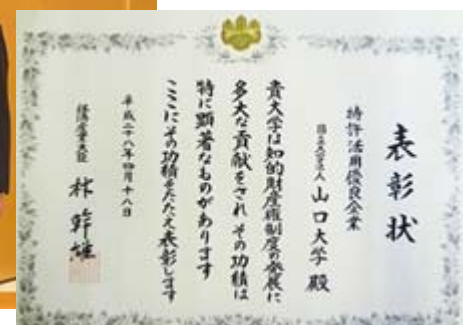 表彰状
特許活用優良企業
国立大学法人 山口大学 殿
貴大学は知的財産権制度の発展に
多大な貢献をされ その功績は
特に顕著なものがあります
ここにその功績をたたえ表彰します
平成二十八年四月十八日
経済産業大臣 林 幹雄